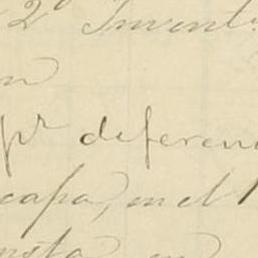 2º Invent
n
pr deferen
capa, en el
nsta